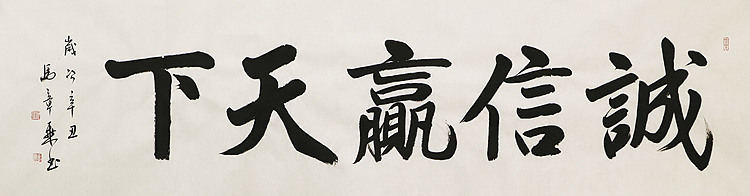 誠信贏天下
歲次辛丑
馬章乘书